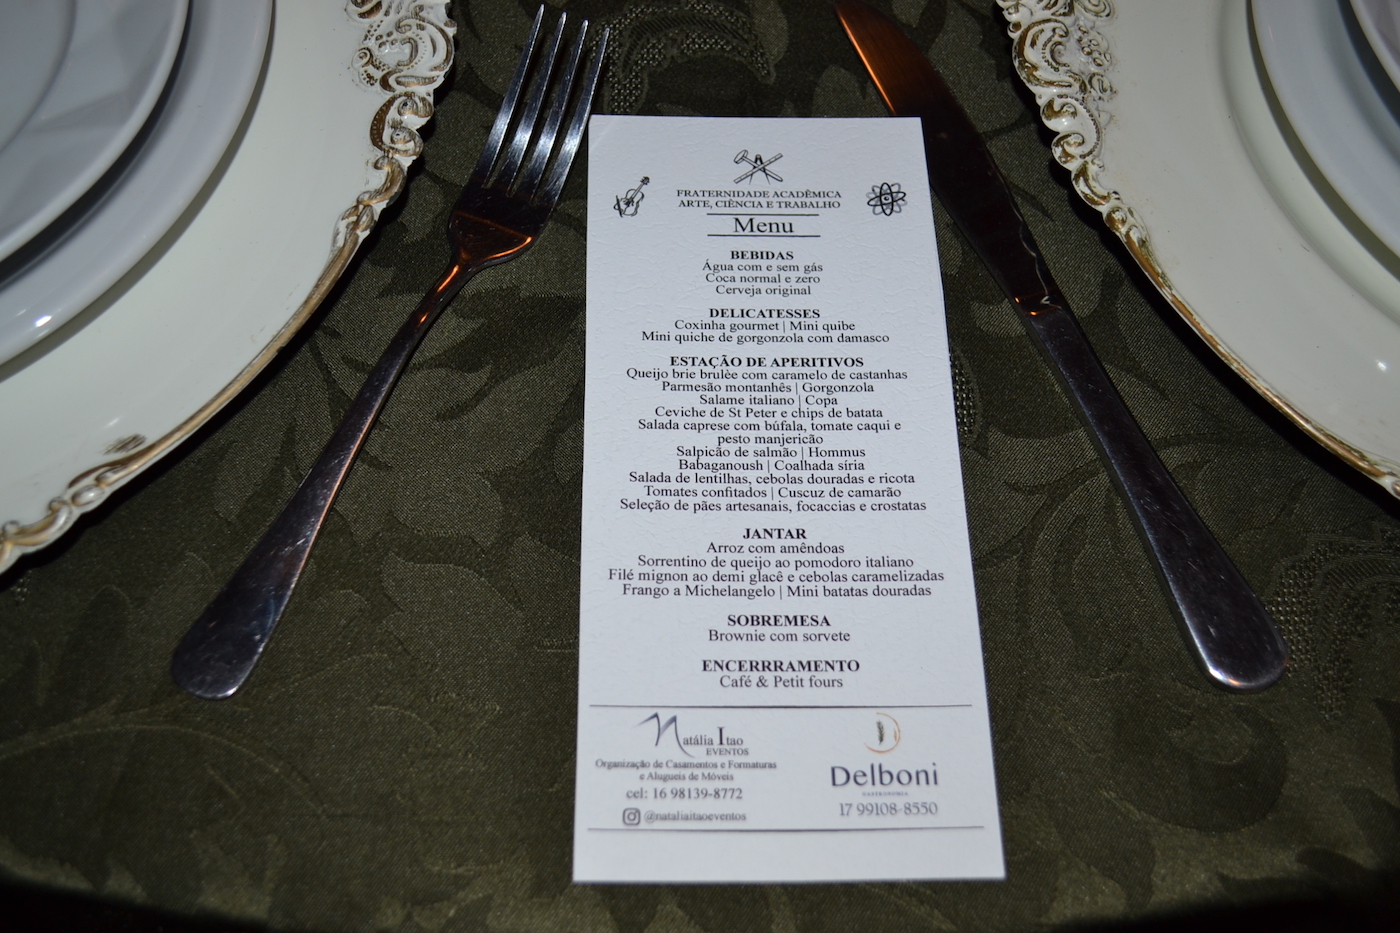 FRATERNIDADE ACADÊMICA
ARTE, CIÊNCIA E TRABALHO
Menu
BEBIDAS
Água com e sem gás
Coca normal e zero
Cerveja original
DELICATESSES
Coxinha gourmet | Mini quibe
Mini quiche de gorgonzola com damasco
ESTAÇÃO DE APERITIVOS
Queijo brie brulèe com caramelo de castanhas
Parmesão montanhês | Gorgonzola
Salame italiano | Copa
Ceviche de St Peter e chips de batata
Salada caprese com búfala, tomate caqui e
pesto manjericão
Salpicão de salmão | Hommus
Babaganoush | Coalhada síria
Salada de lentilhas, cebolas douradas e ricota
Tomates confitados | Cuscuz de camarão
Seleção de pães artesanais, focaccias e crostatas
JANTAR
Arroz com amêndoas
Sorrentino de queijo ao pomodoro italiano
Filé mignon ao demi glacê e cebolas caramelizadas
Frango a Michelangelo | Mini batatas douradas
SOBREMESA
Brownie com sorvete
ENCERRRAMENTO
Café & Petit fours
Natália Itao
EVENTOS
Organização de Casamentos e Formaturas
e Alugueis de Móveis
cel: 16 98139-8772
@nataliaitaoeventos
Delboni
GASTRONOMIA
17 99108-8550